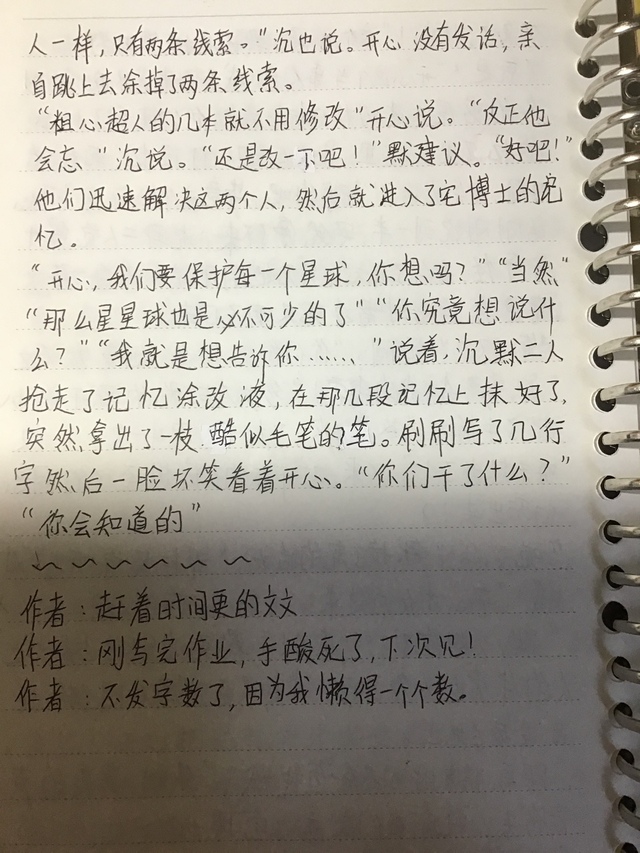 人一样，只有两条线索。"沉也说。开心没有发话，亲
自跳上去涂掉了两条线索。
"粗心超人的几本就不用修改"开心说。"反正他
会忘"沉说。"还是改一下吧！"默建议。"好吧！"
他们迅速解决这两个人，然后就进入了宅博士的记
忆。
"开心，我们要保护每一个星球，你想吗？""当然"
"那么星星球也是必不可少的了""你究竟想说什
么？""我就是想告诉你……"说着，沉默二人
抢走了记忆涂改液，在那几段记忆上抹好了，
突然拿出了一枝酷似毛笔的笔。刷刷写了几行
字然后一脸坏笑看着开心。"你们干了什么？"
"你会知道的"
~~~~~~~
作者：赶着时间更的文文
作者：刚写完作业，手酸死了，下次见！
作者：不发字数了，因为我懒得一个个数。